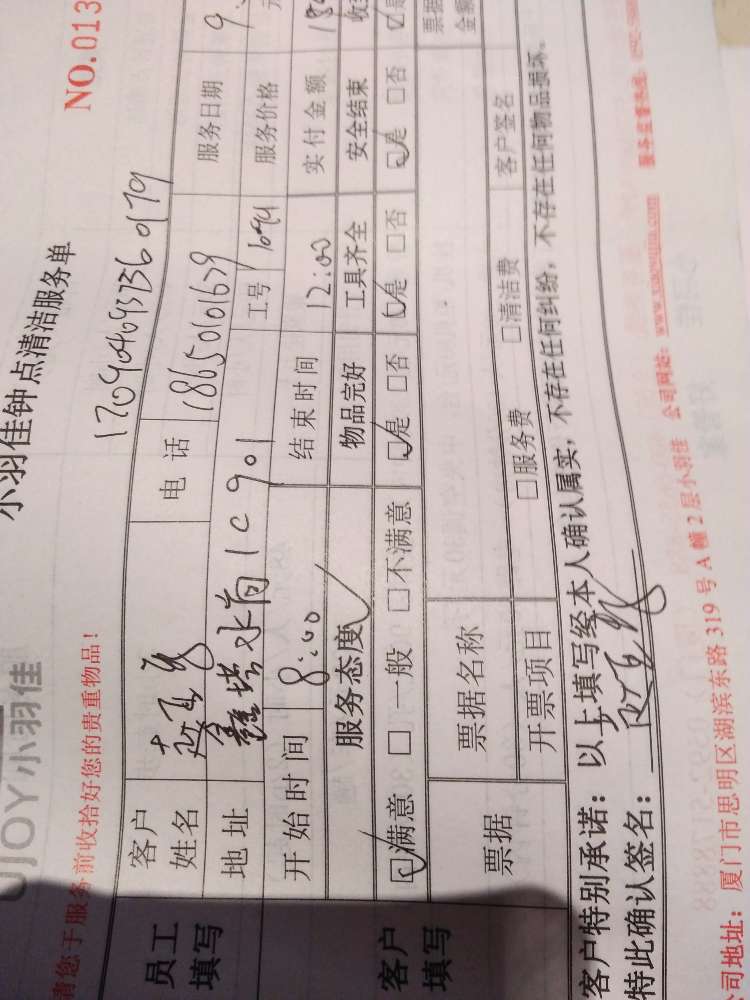 UJOY小羽佳
小羽佳钟点清洁服务单
NO.013
请您于服务前收拾好您的贵重物品！
员工填写
客户姓名
电 话 18650101639
服务日期 9.
地 址 鑫塔水尚1C901
工号 1694
服务价格 元
开始时间 8:00 结束时间 12:00 实付金额
服务态度 物品完好 工具齐全 安全结束
客户填写
☑满意 □一般 □不满意 ☑是 □否 ☑是 □否 ☑是 □否
票据 票据名称 票据金额
开票项目 □服务费 □清洁费 客户签名
客户特别承诺：以上填写经本人确认属实，不存在任何纠纷，不存在任何物品损坏。
特此确认签名：
公司地址：厦门市思明区湖滨东路319号A幢2层小羽佳 公司网站：www.xiaoyujia.com 服务监督热线：